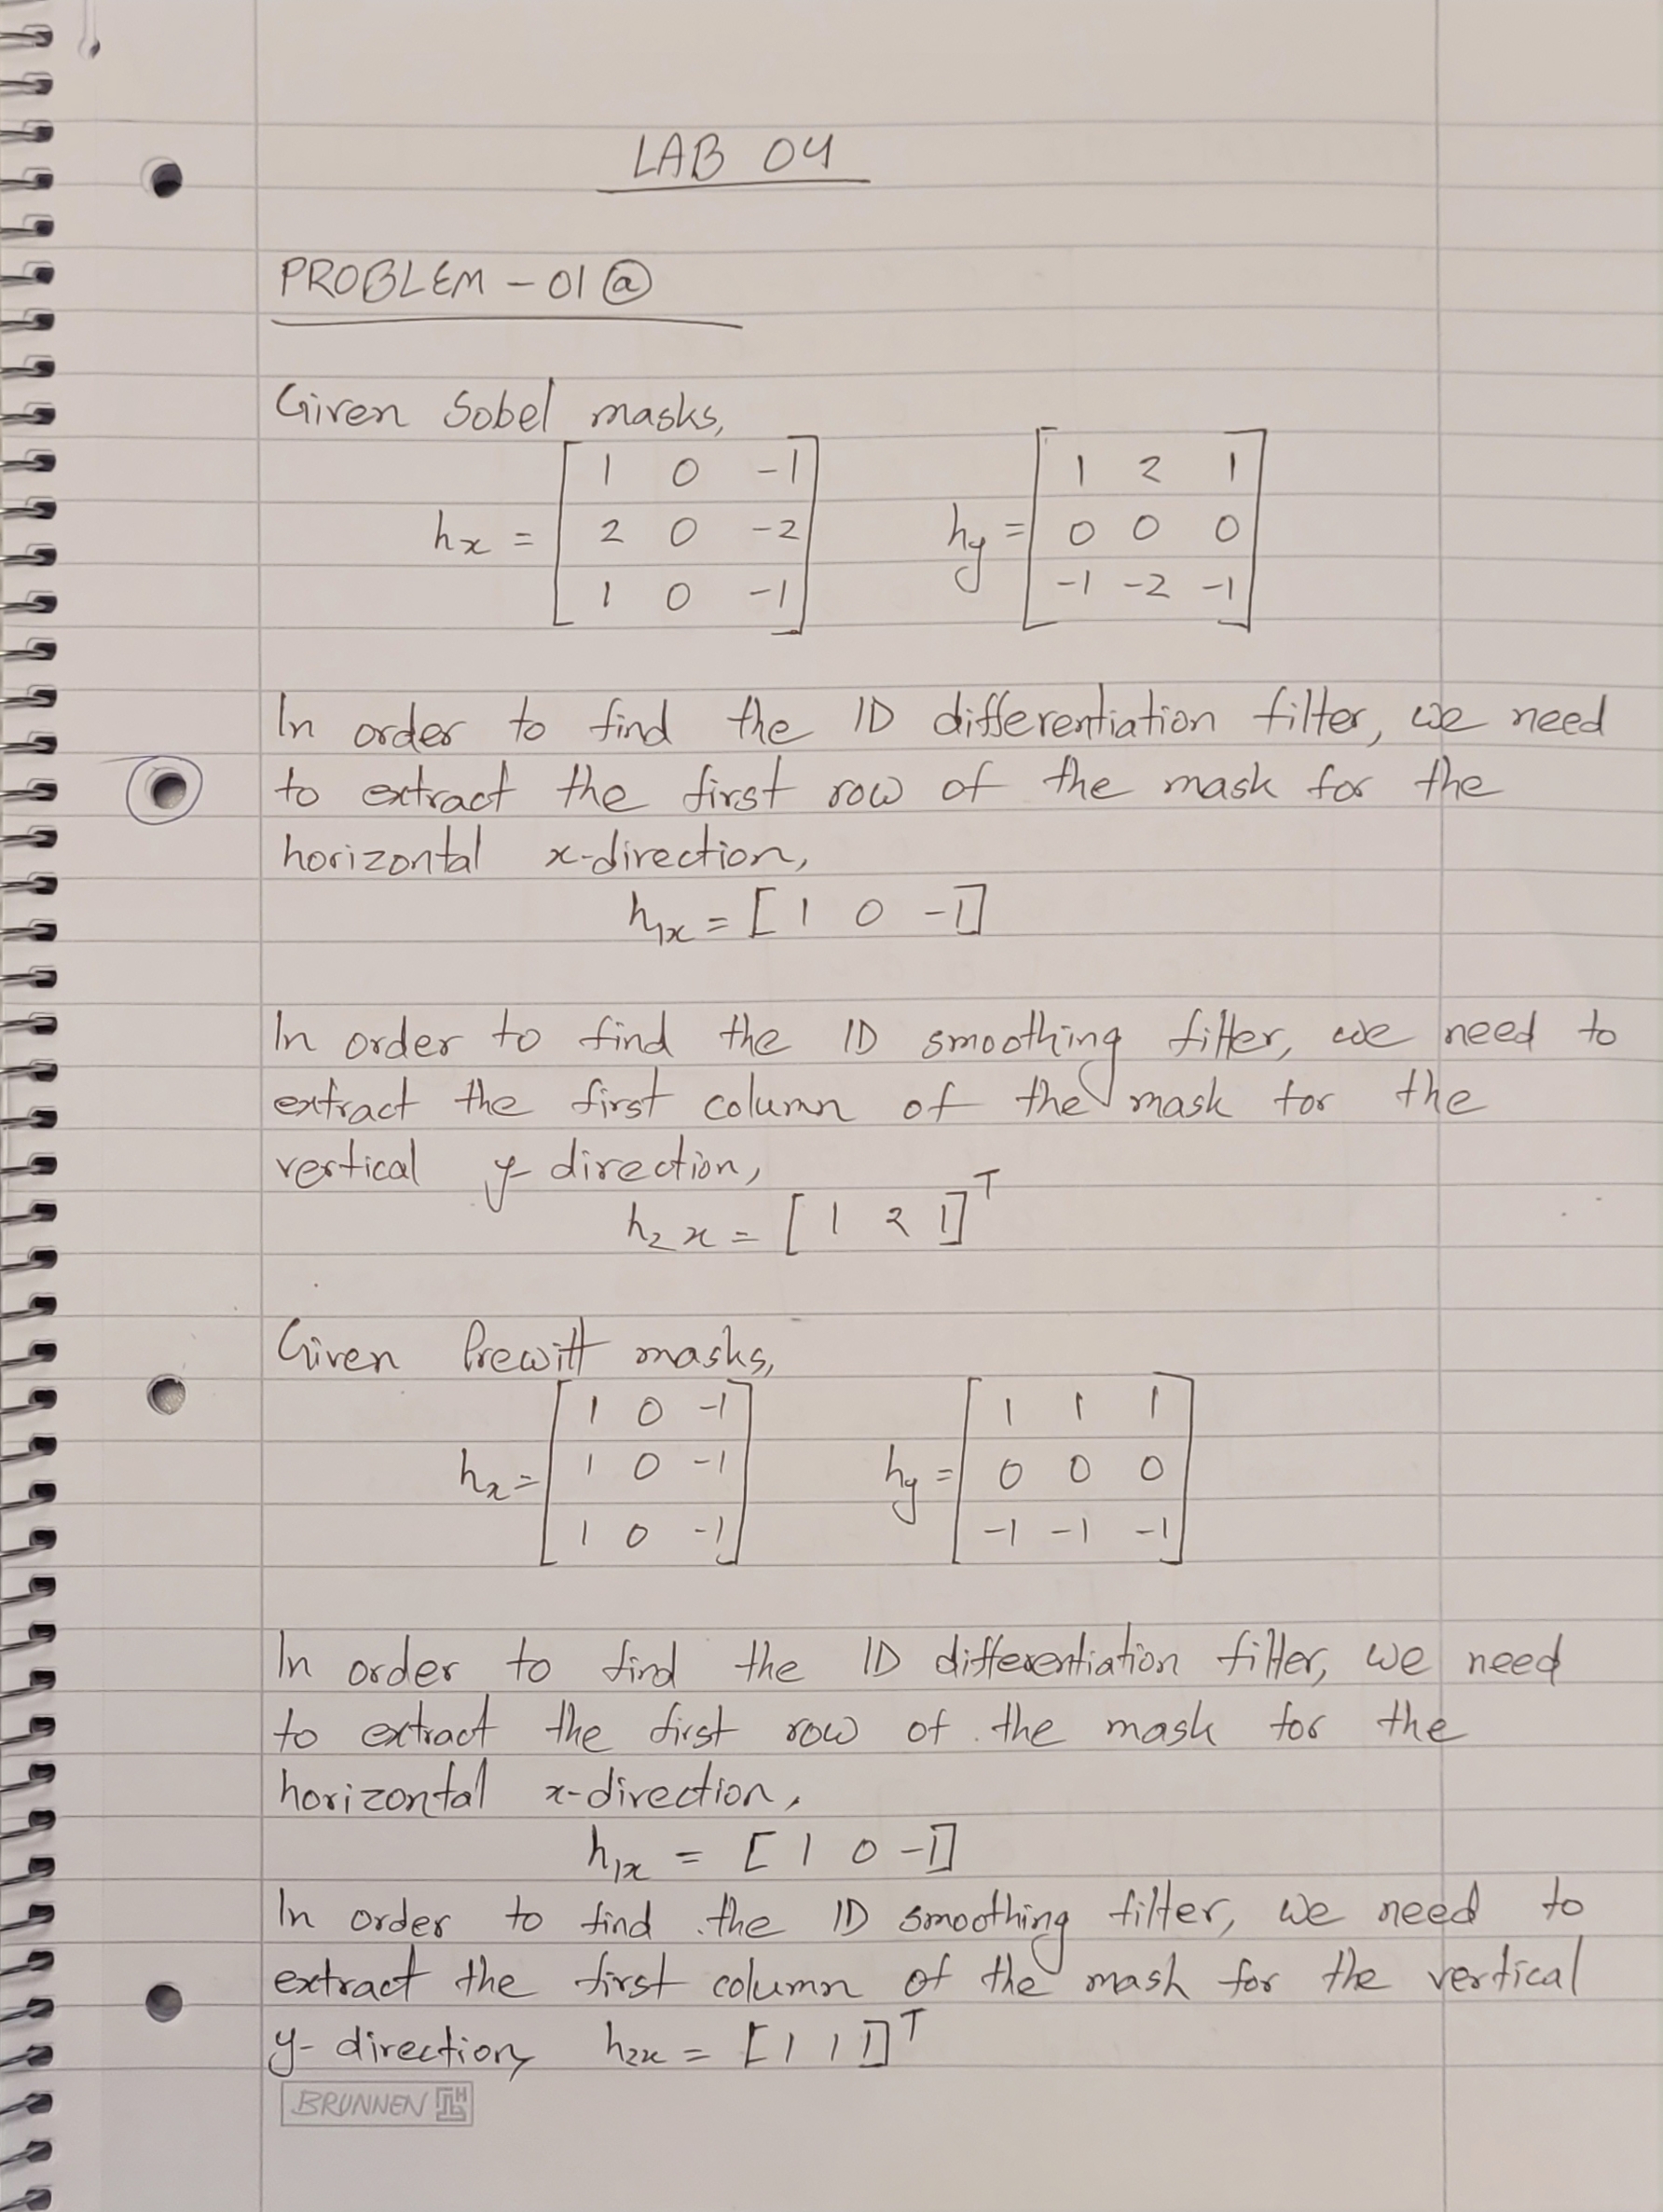 LAB 04
PROBLEM - 01 ⓐ
Given Sobel masks,
hx = [ 1 0 -1 ; 2 0 -2 ; 1 0 -1 ] hy = [ 1 2 1 ; 0 0 0 ; -1 -2 -1 ]
In order to find the 1D differentiation filter, we need
to extract the first row of the mask for the
horizontal x-direction,
h1x = [ 1 0 -1 ]
In order to find the 1D smoothing filter, we need to
extract the first column of the mask for the
vertical y-direction,
h2x = [ 1 2 1 ]^T
Given Prewitt masks,
hx = [ 1 0 -1 ; 1 0 -1 ; 1 0 -1 ] hy = [ 1 1 1 ; 0 0 0 ; -1 -1 -1 ]
In order to find the 1D differentiation filter, we need
to extract the first row of the mask for the
horizontal x-direction,
h1x = [ 1 0 -1 ]
In order to find the 1D smoothing filter, we need to
extract the first column of the mask for the vertical
y-direction, h2x = [ 1 1 1 ]^T
BRUNNEN